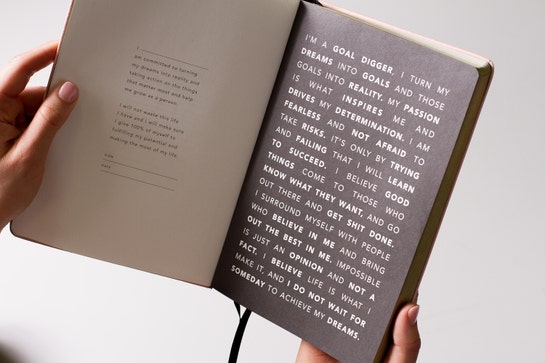 I
am committed to turning
my dreams into reality and
taking action on the things
that matter most and help
me grow as a person.
I will not waste this life
I have and I will make sure
I give 100% of myself to
fulfilling my potential and
making the most of my life.
SIGN
DATE
I'M A GOAL DIGGER. I TURN MY
DREAMS INTO GOALS AND THOSE
GOALS INTO REALITY. MY PASSION
IS WHAT INSPIRES ME AND
DRIVES MY DETERMINATION. I AM
FEARLESS AND NOT AFRAID TO
TAKE RISKS. IT'S ONLY BY TRYING
AND FAILING THAT I WILL LEARN
TO SUCCEED. I BELIEVE GOOD
THINGS COME TO THOSE WHO
KNOW WHAT THEY WANT, AND GO
OUT THERE AND GET SHIT DONE.
I SURROUND MYSELF WITH PEOPLE
WHO BELIEVE IN ME AND BRING
OUT THE BEST IN ME. IMPOSSIBLE
IS JUST AN OPINION AND NOT A
FACT. I BELIEVE LIFE IS WHAT I
MAKE IT, AND I DO NOT WAIT FOR
SOMEDAY TO ACHIEVE MY DREAMS.